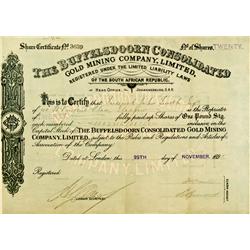 Share Certificate No. 3639 No. of Shares, TWENTY
THE BUFFELSDOORN CONSOLIDATED
GOLD MINING COMPANY, LIMITED.
REGISTERED UNDER THE LIMITED LIABILITY LAWS
OF THE SOUTH AFRICAN REPUBLIC.
HEAD OFFICE, JOHANNESBURG, S.A.R.
This is to Certify that
is the Proprietor
of fully paid-up Shares of One Pound Stg.
each, numbered inclusive in the
Capital Stock of THE BUFFELSDOORN CONSOLIDATED GOLD MINING
COMPANY, LIMITED, subject to the Rules and Regulations and Articles of
Association of the Company.
Dated at London, this 29TH day of NOVEMBER, 189
Registered
LONDON SECRETARY.